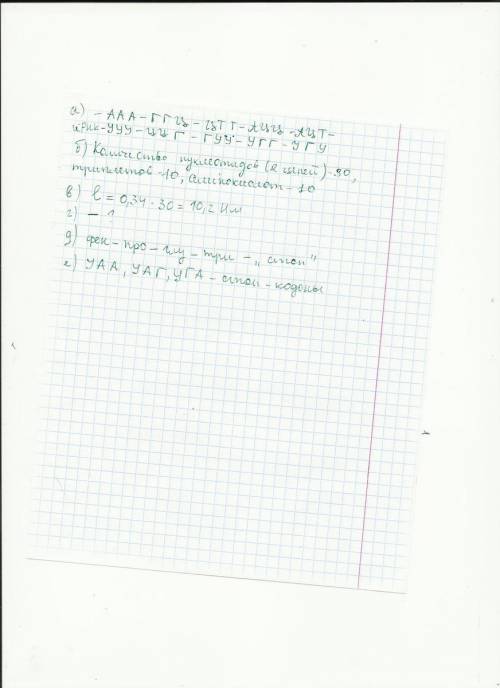 а) – ААА – ГГЦ – ЦТТ – АЦЦ – АЦТ –
иРНК – УУУ – ЦЦГ – ГУУ – УГГ – УГУ
б) Количество нуклеотидов (2 цепей) – 90,
триплетов – 10, аминокислот – 10
в) l = 0,34 · 30 = 10,2 Нм
г) – ?
д) фен – про – глу – три – „ стоп "
е) УАА, УАГ, УГА – стоп – кодоны